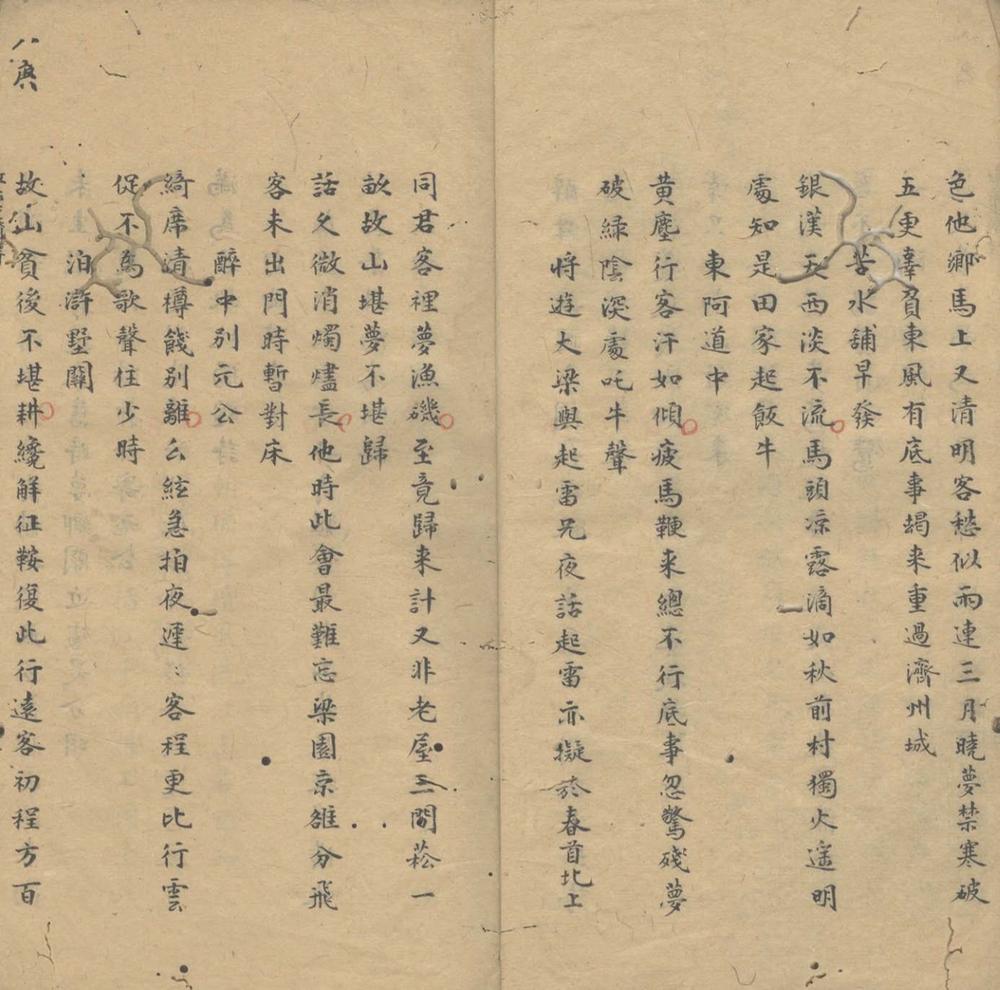 色他鄉馬上又清明客愁似雨連三月曉夢禁寒破
五更辜負東風有底事朅来重過濟州城
苦水舖早發
銀漢西淡不流馬頭凉露滴如秋前村獨火遙明
處知是田家起飯牛
東阿道中
黄塵行客汗如傾疲馬鞭来總不行底事忽驚殘夢
破緑陰深處叱牛聲
将遊大梁與起雷兄夜話起雷亦擬於春首北上
同君客裡夢漁磯至竟歸来計又非老屋三間菘一
畝故山堪夢不堪歸
話久微消燭燼長他時此會最難忘梁園京雒分飛
客未出門時暫對床
醉中别元公
綺席清樽餞别離么絃急拍夜遲〻客程更比行雲
促不為歌聲住少時
泊滸墅關
故山貧後不堪耕纔解征鞍復此行遠客初程方百